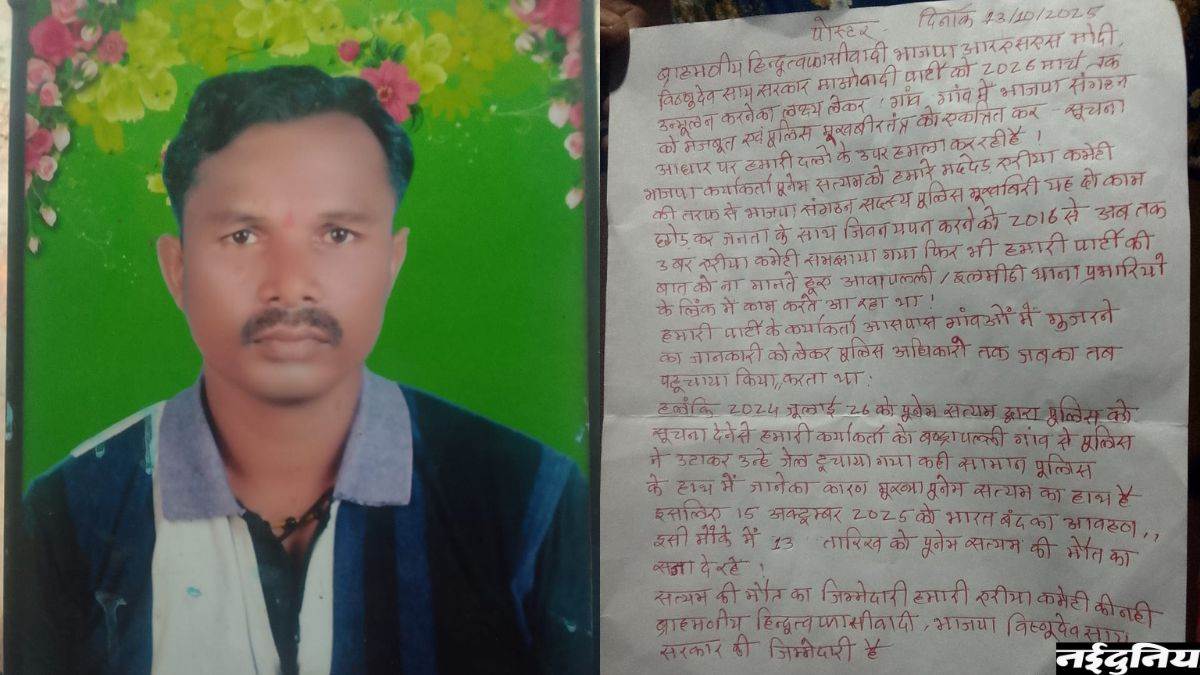 पोस्टर    दिनांक 13/10/2025
ब्राहमणीय हिन्दुत्व फासीवादी भाजपा आरएसएस मोदी,
विष्णुदेव साय सरकार माओवादी पार्टी को 2026 मार्च तक
उन्मूलन करनेका लक्ष्य लेकर, गांव गांव में भाजपा संगठन
को मजबूत एवं पुलिस मूखबीर तंत्र को एकत्रित कर - सूचना
आधार पर हमारी दलो के उपर हमला कर रही है !
भाजपा कार्यकर्ता पूनेम सत्यम को हमारे मददेड़ एरीया कमेटी
की तरफ से भाजपा संगठन सदस्य पुलिस मूखबिरी यह दो काम
छोड़ कर जनता के साथ जिवन यपन करने को 2016 से अब तक
3 बर एरीया कमेटी समझाया गया फिर भी हमारी पार्टी की
बात को ना मानते हूए आवापल्ली / इलमीडी थाना प्रभारियो
के लिंक मे काम करते आ रहा था !
हमारी पार्टी के कार्यकर्ता आसपास गांवओं में गुजरने
का जानकारी को लेकर पुलिस अधिकारी तक जबका तब
पहूचाया किया,, करता था !
हलंकि 2024 जूलाई 26 को पूनेम सत्यम द्वारा पुलिस को
सूचना देने से हमारी कार्यकर्ता को गांव से पुलिस
ने उठाकर उन्हे जेल हूचाया गया कही सामान पुलिस
के हाथ में जानेका कारण पूनेम सत्यम का हाथ है
इसलिए 15 अक्टूम्बर 2025 को भारत बंद का आवहन ,,
इसी मौके में 13 तारिख को पूनेम सत्यम की मौत का
सजा दे रहे !
सत्यम की मौत का जिम्मेदारी हमारी एरीया कमेटी की नही
ब्राहमणीय हिन्दुत्व फासीवादी, भाजपा विष्णुदेव साय
सरकार की जिम्मेदारी है
नईदुनिया